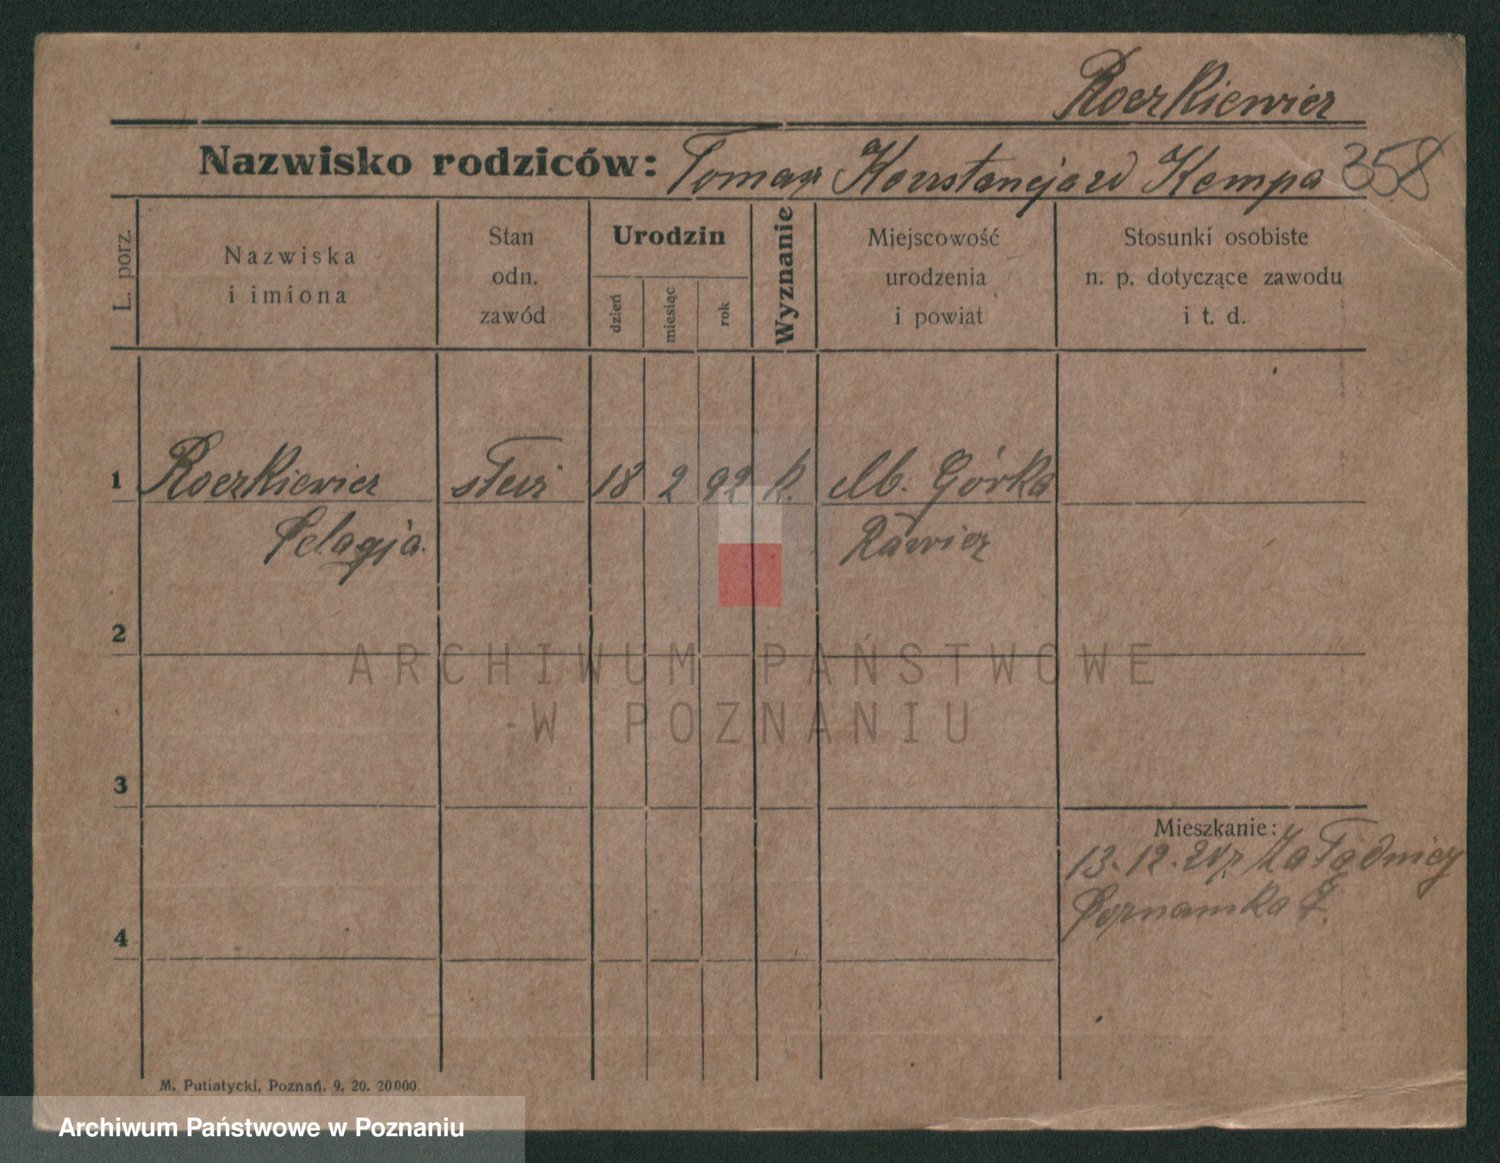 Roerkiewicz
Nazwisko rodziców: Tomasz Konstancja zd Kempa 358
L. porz.
Nazwiska
i imiona
Stan
odn.
zawód
Urodzin
dzień
miesiąc
rok
Wyznanie
Miejscowość
urodzenia
i powiat
Stosunki osobiste
n. p. dotyczące zawodu
i t. d.
1 Roerkiewicz 18 2 92 k. M. Górka
Pelagja. Rawicz
2
3
4
Mieszkanie:
13.12.24
M. Putiatycki, Poznań. 9. 20. 20000.
ARCHIWUM PAŃSTWOWE
W POZNANIU
Archiwum Państwowe w Poznaniu